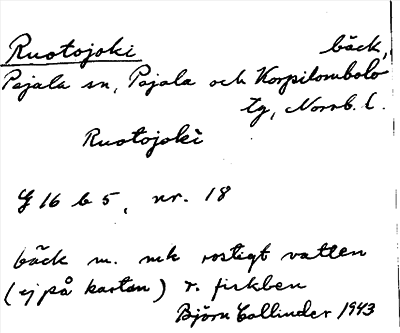 Ruotojoki bäck,
Pajala sn, Pajala och Korpilombolo
tg, Norrb. l.
Ruotojoki
G 16 b 5, nr. 18
bäck m. mk rostigt vatten
(ej på kartan) r. fiskben
Björn Collinder 1943